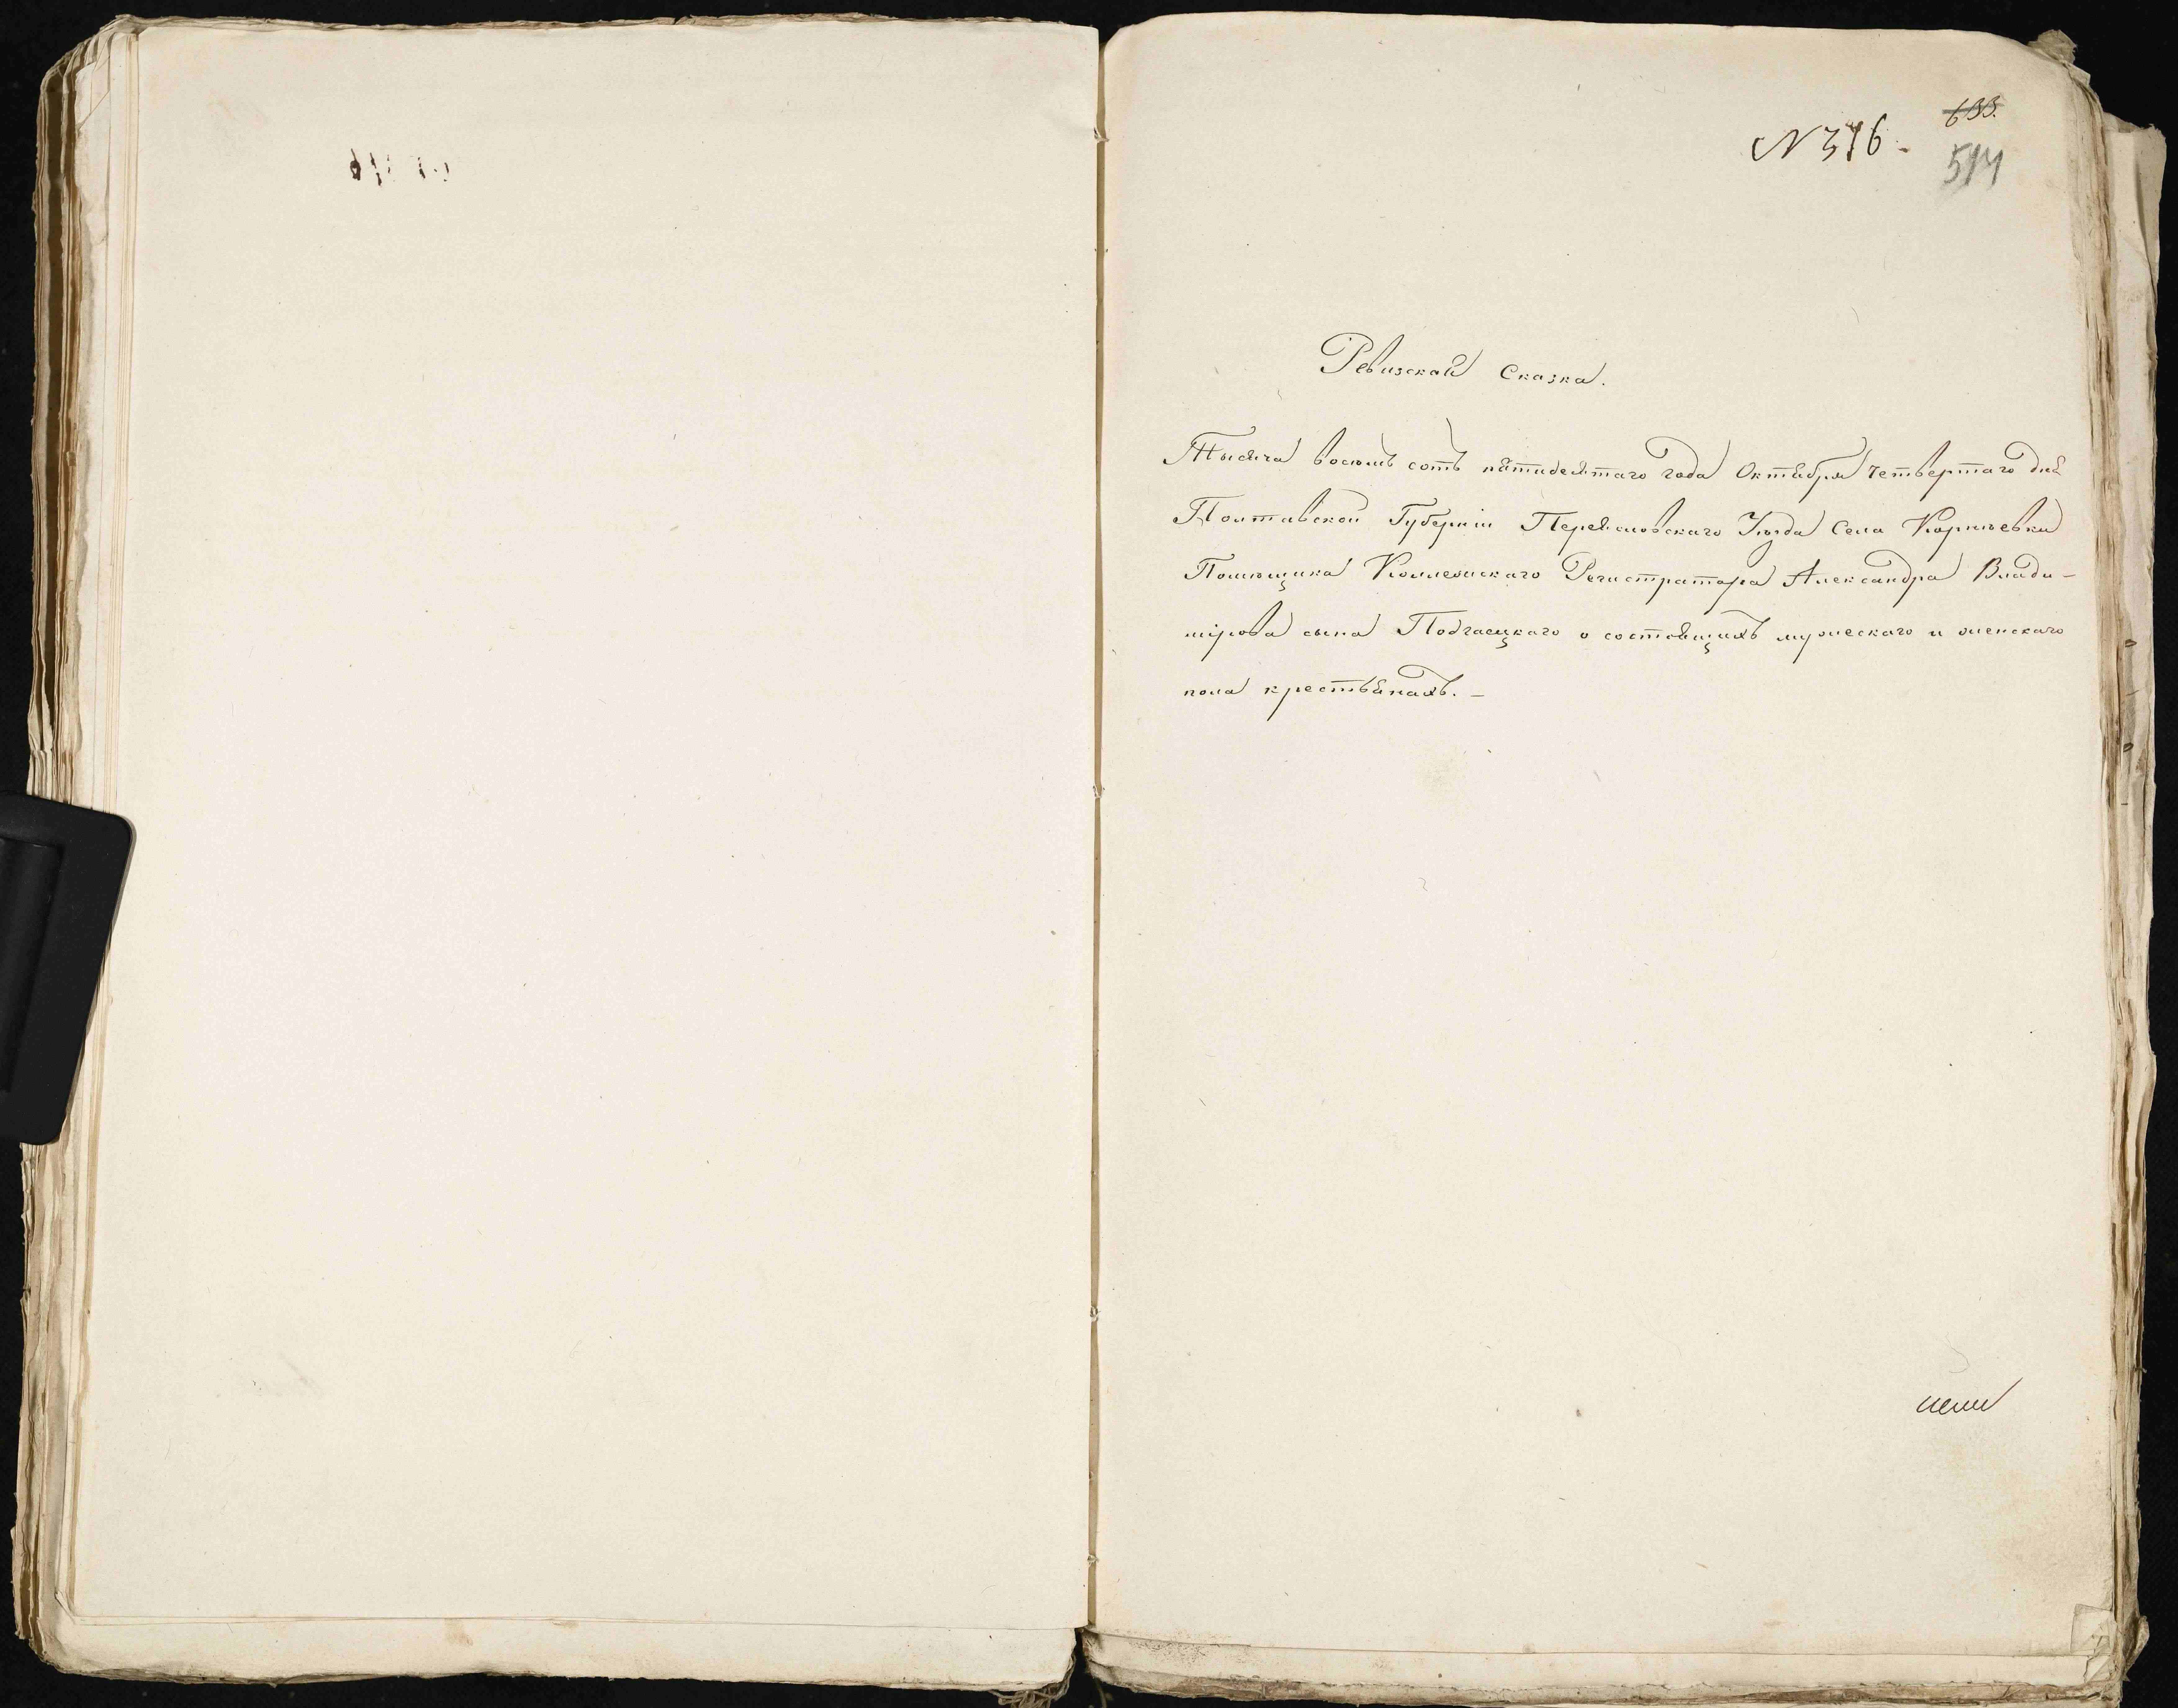 633.
N 376.-
514
Ревизская Сказка.
Тысяча восемь сотъ пятидесятаго года Октября четвертаго дня
Полтавской Губерніи Переяславскаго Уѣзда Села Корнѣевки
Помѣщика Коллежскаго Регистратора Александра Влади-
мірова сына Подгаецкаго о состоящихъ мужескаго и женскаго
пола крестьянахъ.-